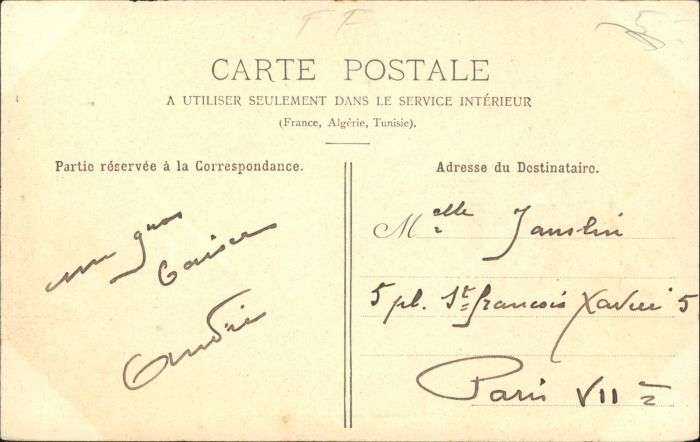 CARTE POSTALE
A UTILISER SEULEMENT DANS LE SERVICE INTÉRIEUR
(France, Algérie, Tunisie).
Partie réservée à la Correspondance.
une gros
Baiser
André
Adresse du Destinataire.
Melle
5 pl. St François Xavier 5
Paris VII